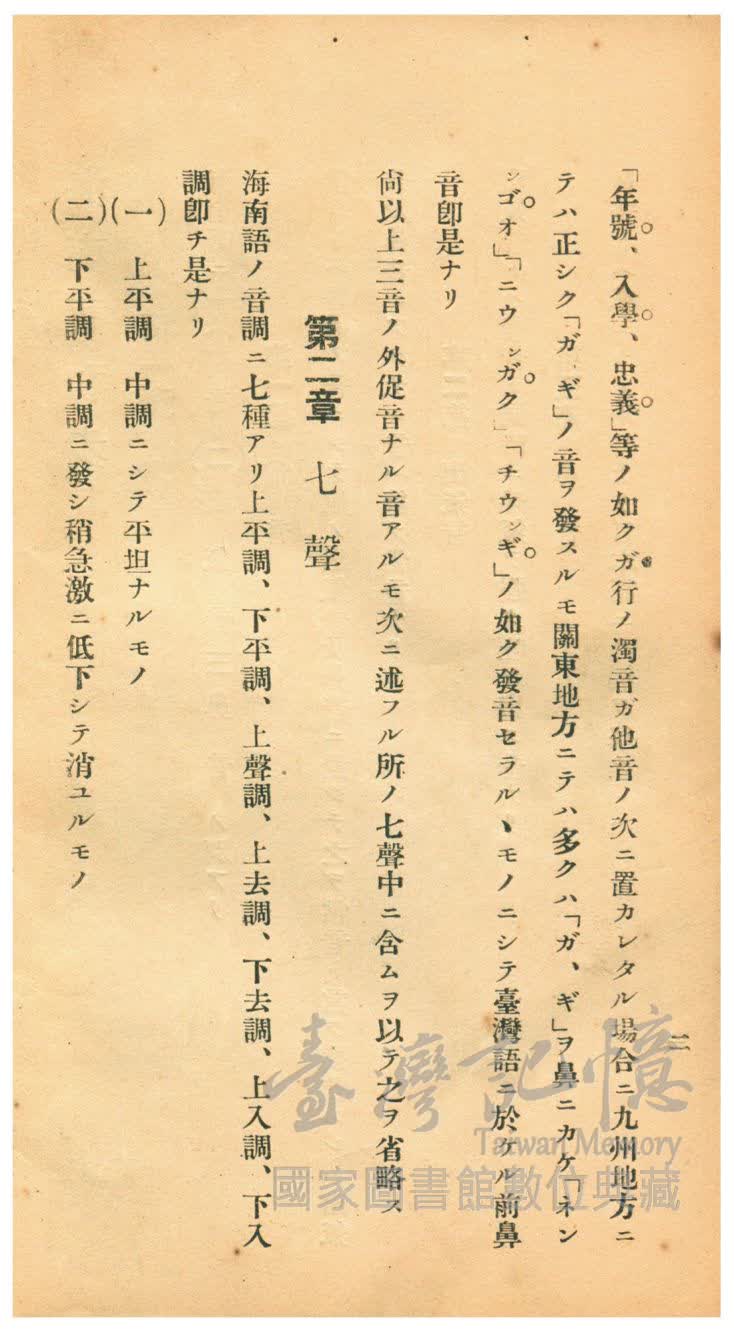 二
「年號、入學、忠義」等ノ如クガ行ノ濁音ガ他音ノ次ニ置カレタル場合ニ九州地方ニ
テハ正シク「ガ、ギ」ノ音ヲ發スルモ關東地方ニテハ多クハ「ガ、ギ」ヲ鼻ニカケ「ネン
ンゴオ」「ニウンガク」「チウンギ」ノ如ク發音セラルヽモノニシテ臺灣語ニ於ケル前鼻
音卽是ナリ
尙以上三音ノ外促音ナル音アルモ次ニ述フル所ノ七聲中ニ含ムヲ以テ之ヲ省略ス
第二章 七聲
海南語ノ音調ニ七種アリ上平調、下平調、上聲調、上去調、下去調、上入調、下入
調卽チ是ナリ
(一) 上平調 中調ニシテ平坦ナルモノ
(二) 下平調 中調ニ發シ稍急激ニ低下シテ消ユルモノ
臺灣記憶
Taiwan Memory
國家圖書館數位典藏